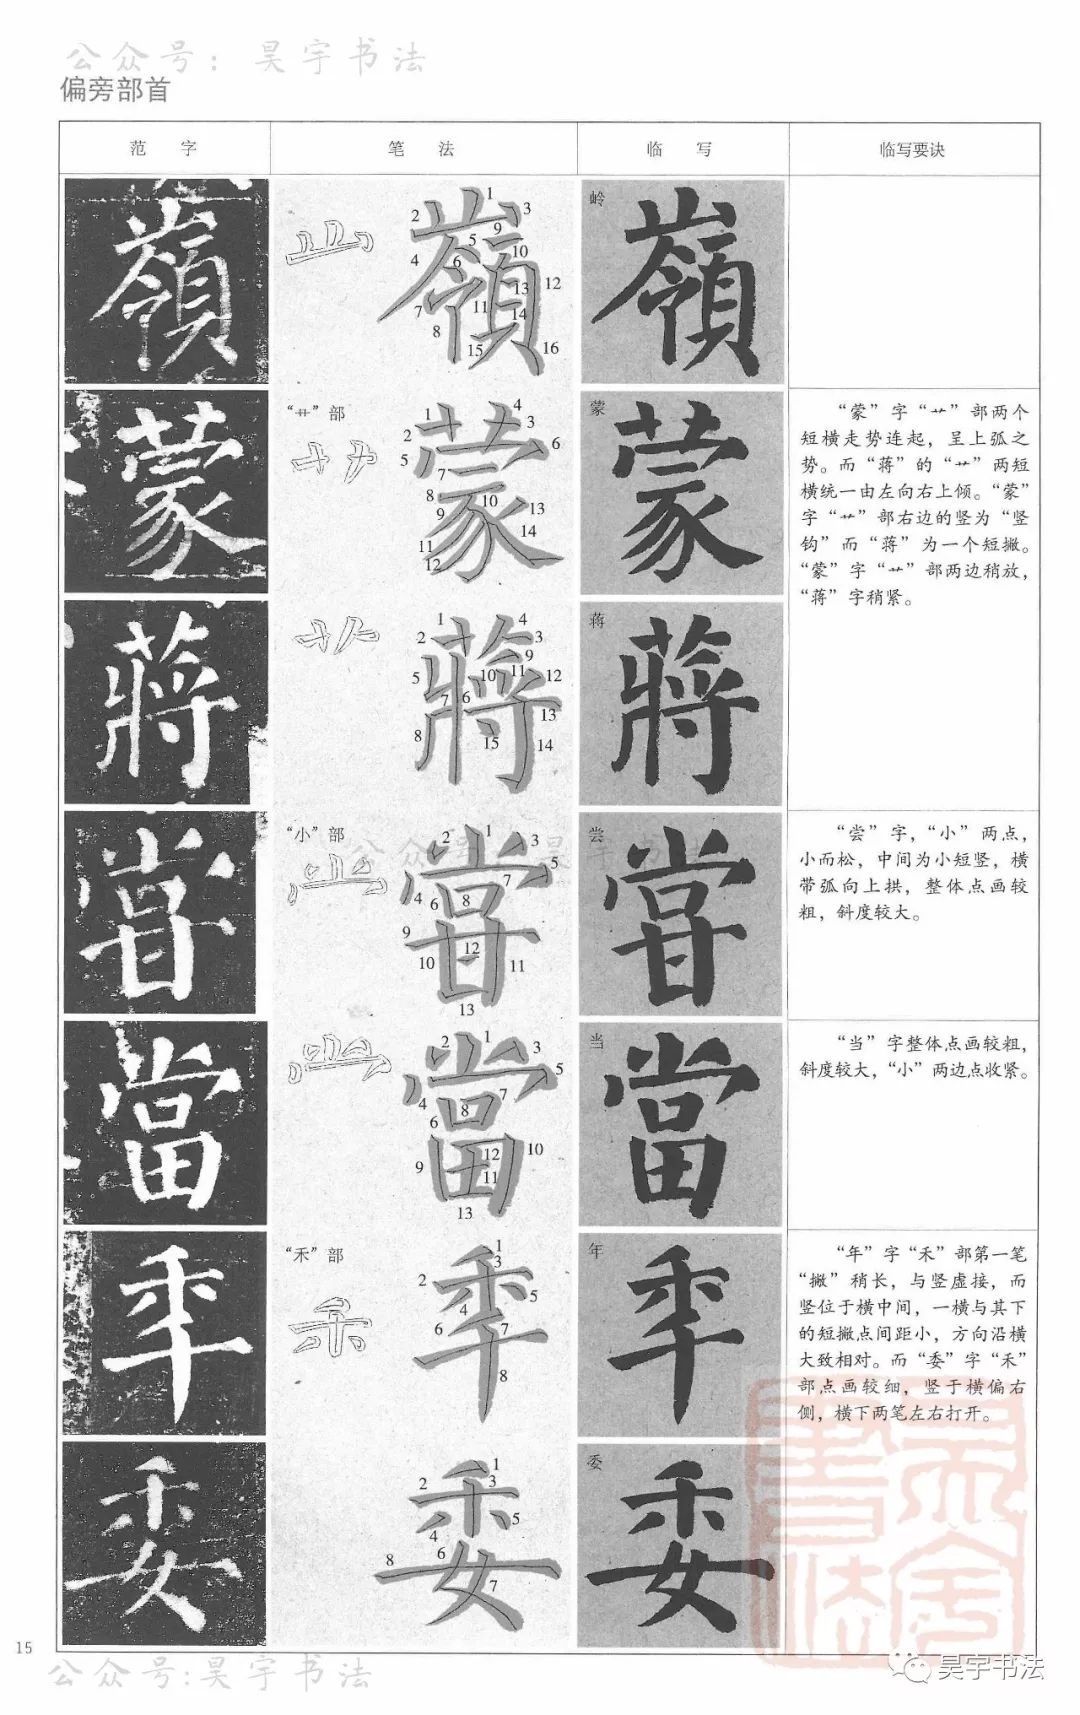 公众号：昊宇书法
偏旁部首
范 字
笔 法
临 写
临写要诀
嶺
1
2
3
9
5
10
4
6
12
13
7
11
14
8
15
16
岭
嶺
蒙
“艹”部
4
1
3
2
6
5
7
8
10
13
9
14
11
12
蒙
蒙
“蒙”字“艹”部两个
短横走势连起，呈上弧之
势。而“蒋”的“艹”两短
横统一由左向右上倾。“蒙”
字“艹”部右边的竖为“竖
钩”而“蒋”为一个短撇。
“蒙”字“艹”部两边稍放，
“蒋”字稍紧。
蔣
1
4
2
3
9
5
10
11
12
7
6
13
8
15
14
蒋
蔣
嘗
“小”部
2
1
3
5
7
4
6
8
9
12
10
11
13
尝
嘗
“尝”字，“小”两点，
小而松，中间为小短竖，横
带弧向上拱，整体点画较
粗，斜度较大。
當
2
1
3
5
4
7
8
6
12
10
9
11
13
当
當
“当”字整体点画较粗，
斜度较大，“小”两边点收紧。
年
“禾”部
1
3
2
5
4
6
7
8
年
年
“年”字“禾”部第一笔
“撇”稍长，与竖虚接，而
竖位于横中间，一横与其下
的短撇点间距小，方向沿横
大致相对。而“委”字“禾”
部点画较细，竖于横偏右
侧，横下两笔左右打开。
委
1
2
3
5
4
6
8
7
委
委
15
公众号:昊宇书法
昊宇书法